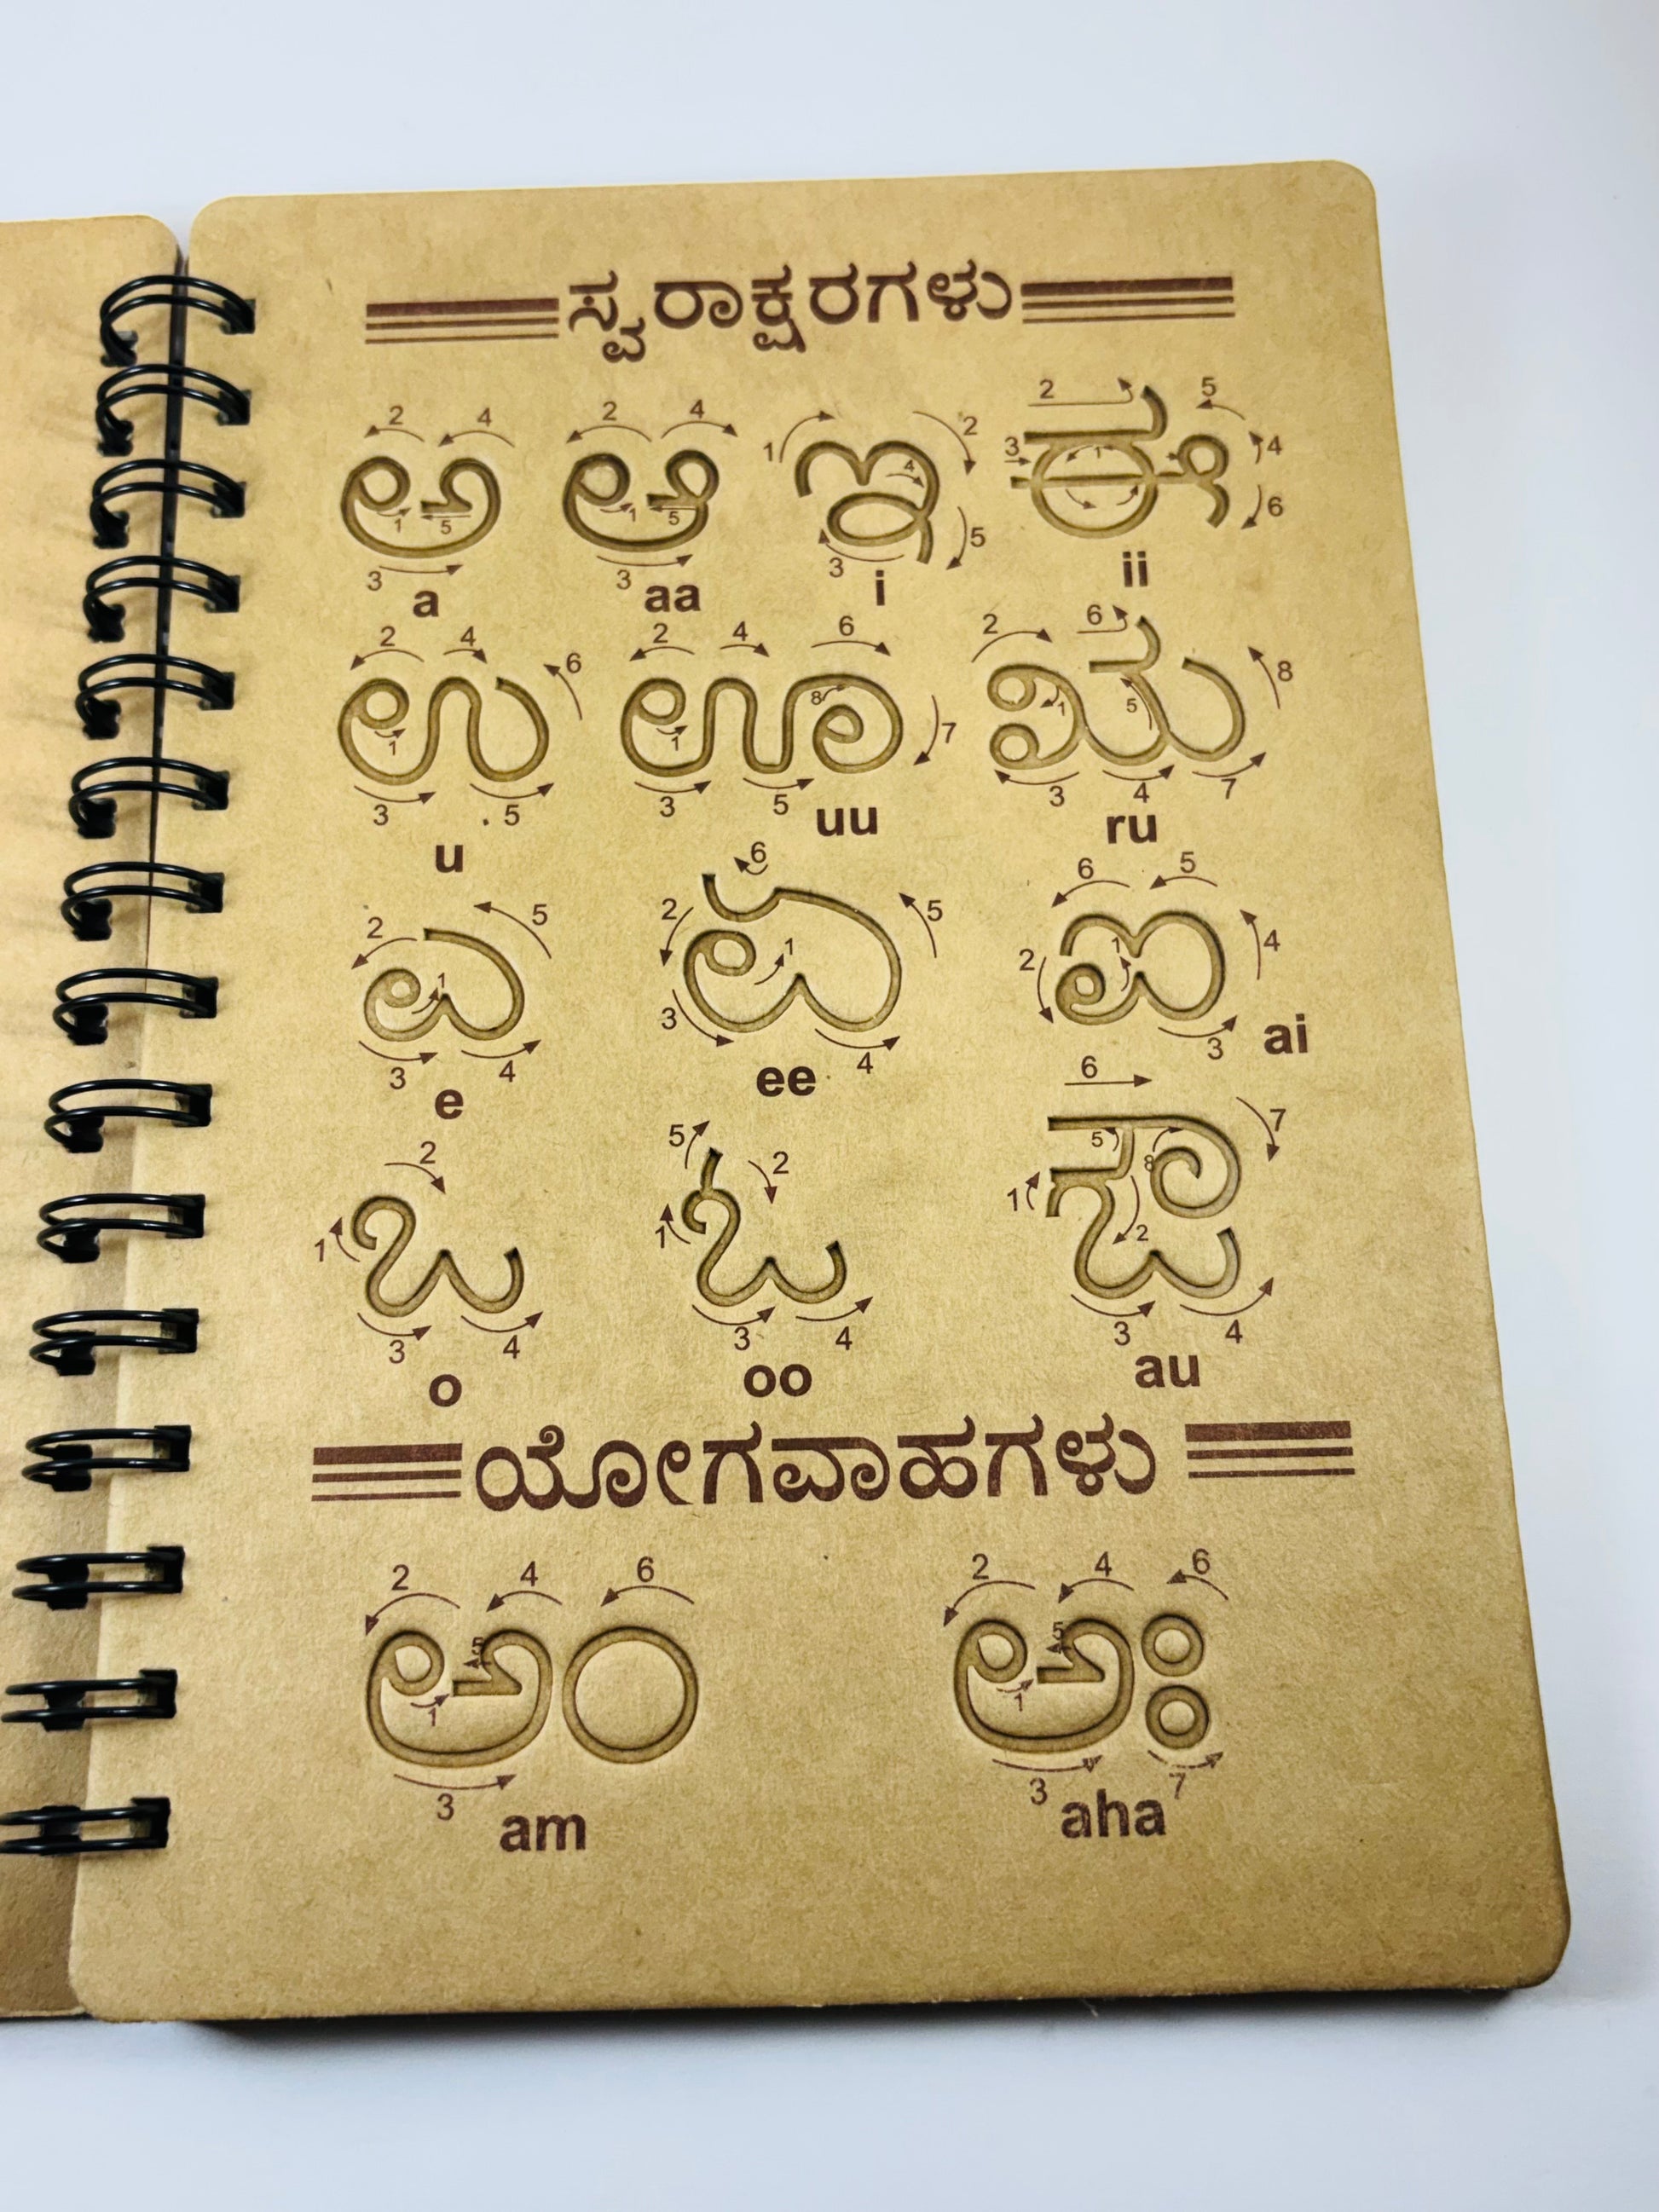 ಸ್ವರಾಕ್ಷರಗಳು
ಅ ಆ ಇ ಈ
a aa i ii
ಉ ಊ ಋ
u uu ru
ಎ ಏ ಐ
e ee ai
ಒ ಓ ಔ
o oo au
ಯೋಗವಾಹಗಳು
ಅಂ ಅಃ
am aha